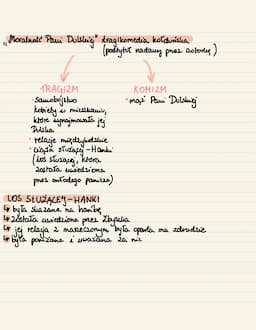 „Moralność Pani Dulskiej" tragikomedia kołtuńska
(podtytuł nadany przez autorkę)
TRAGIZM
• samobójstwo
kobiety z mieszkania,
które wynajmowała jej
Dulska
• relacje międzyludzkie
• ciąża służącej - Hanki
(los służącej, która
została uwiedziona
przez młodego panicza)
KOMIZM
• mąż Pani Dulskiej
LOS SŁUŻĄCEJ - HANKI
↳ była skazana na hańbę
↳ została uwiedziona przez Zbyszka
↳ jej relacja z narzeczonym była oparta na zdradzie
↳ była poniżana i uważana za nic